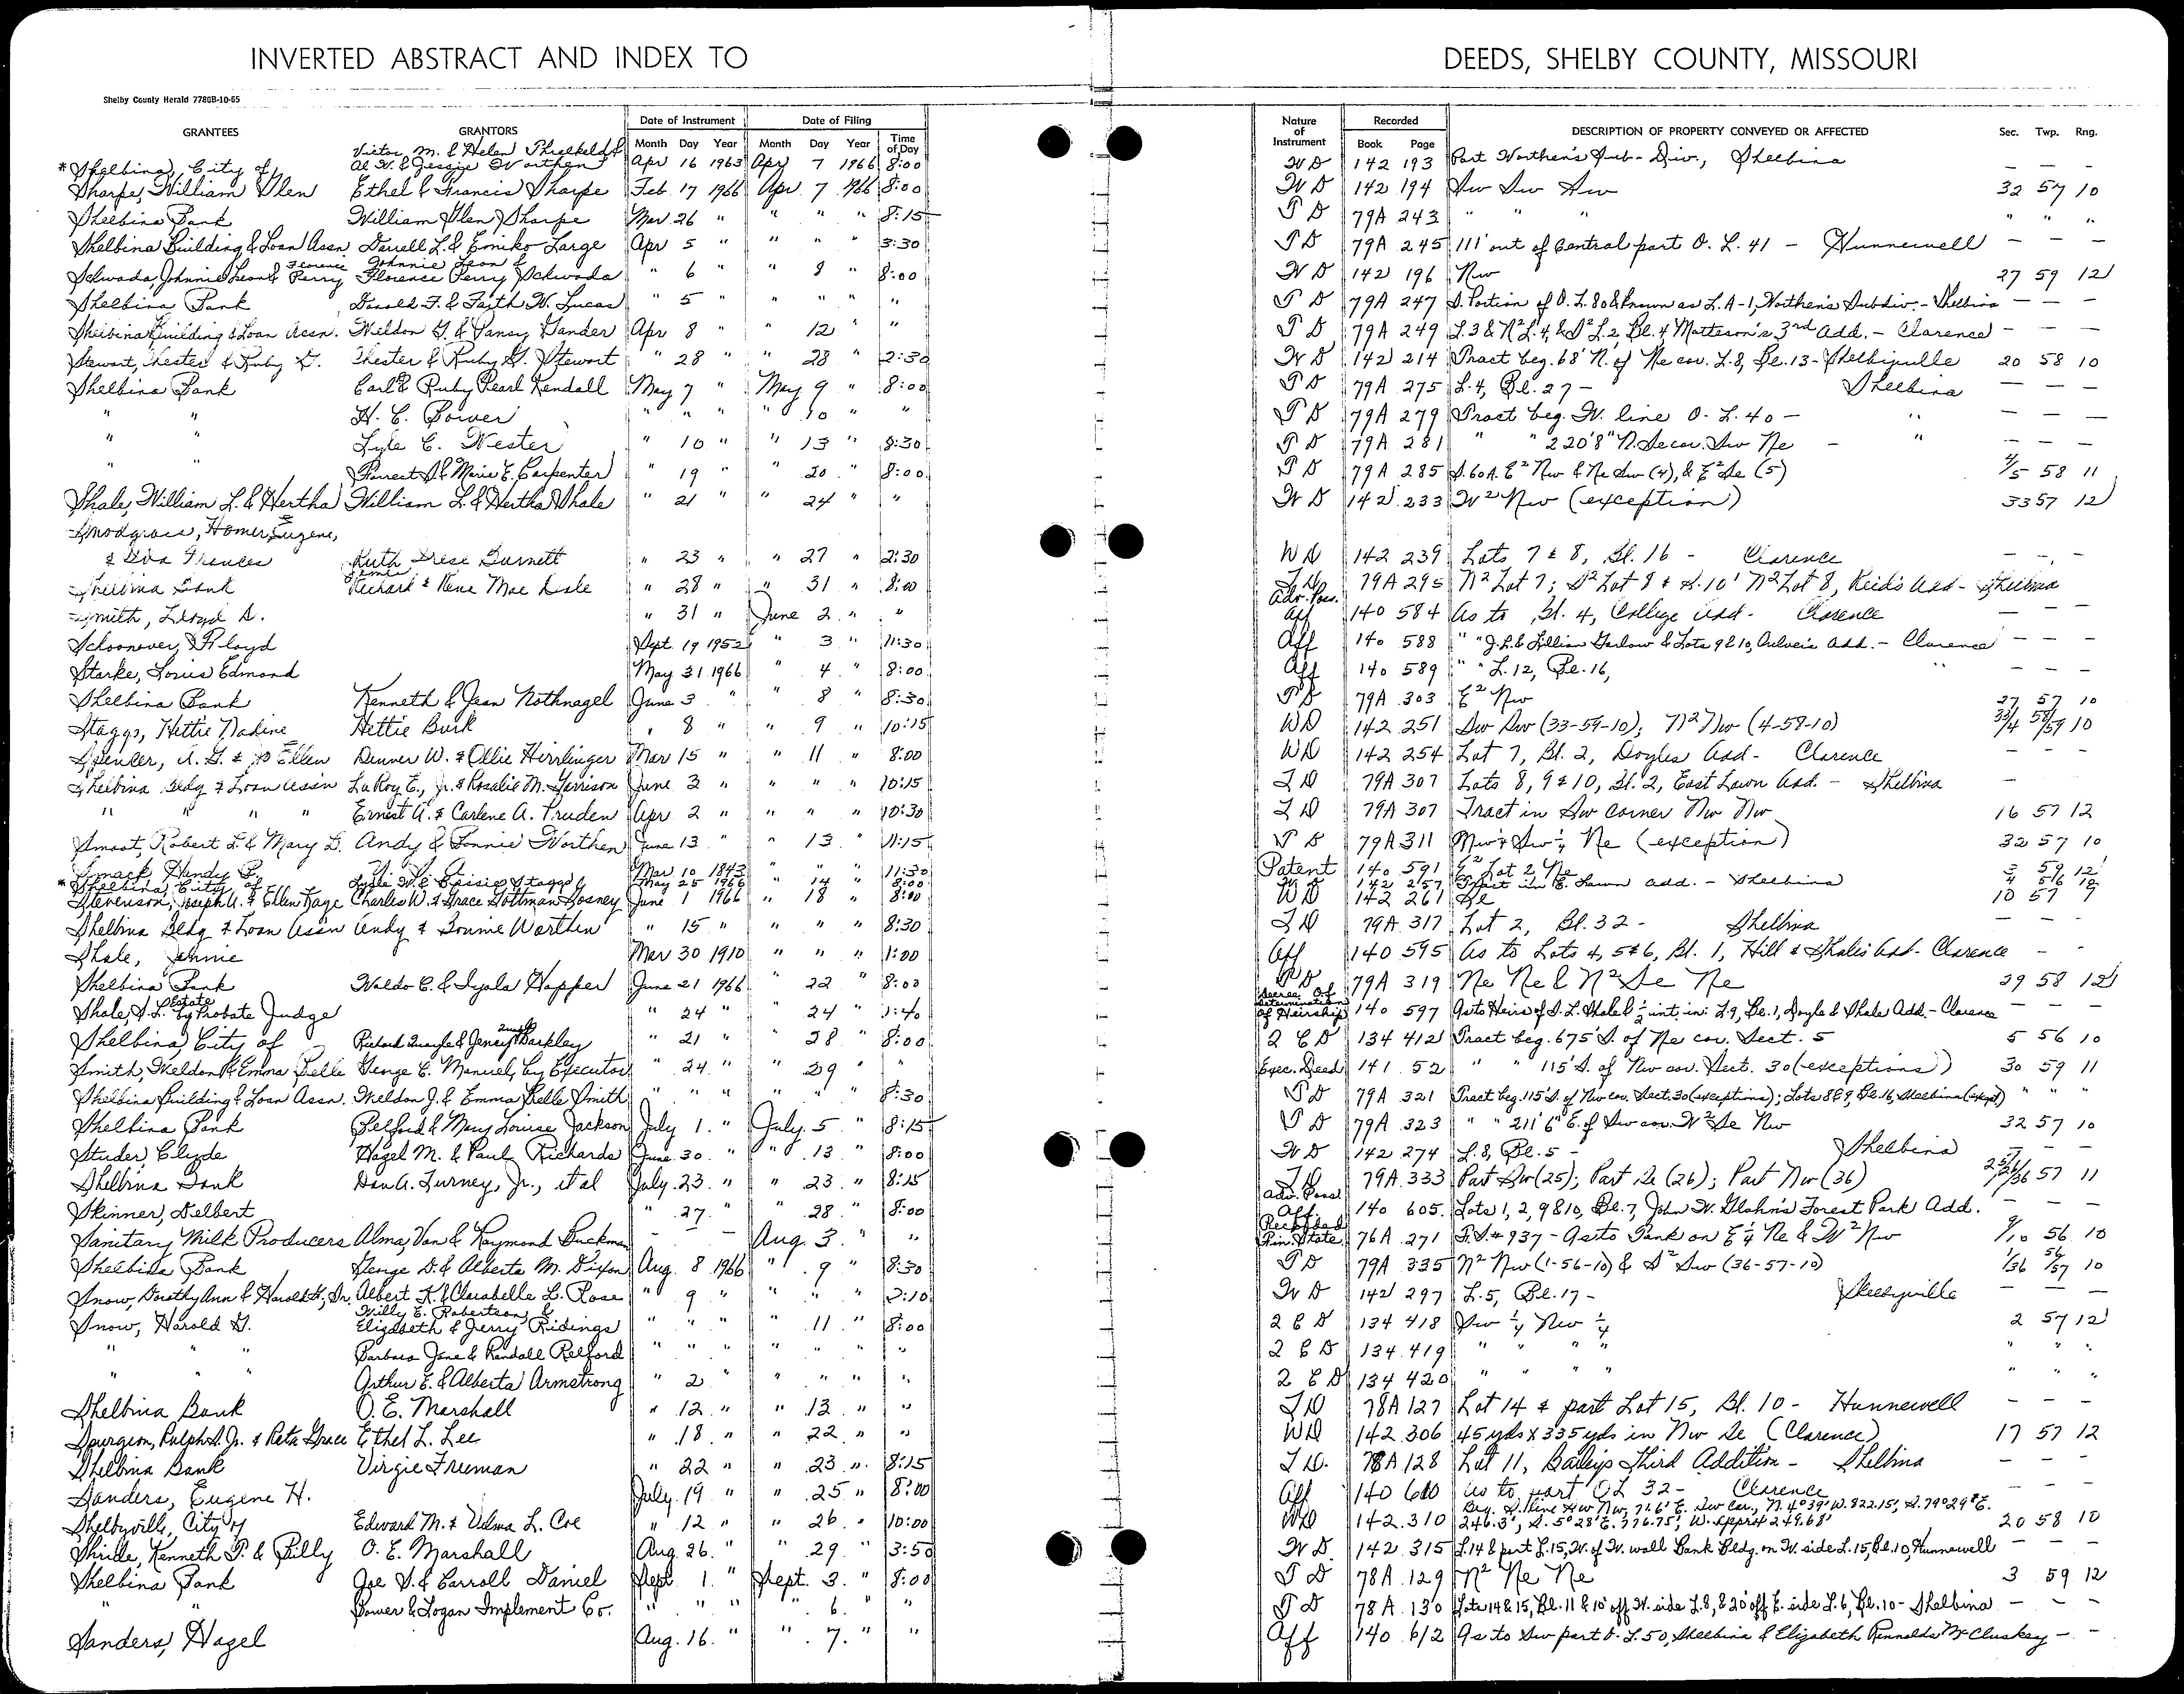 INVERTED ABSTRACT AND INDEX TO DEEDS, SHELBY COUNTY, MISSOURI
Shelby County Herald 7780B-10-65
GRANTEES GRANTORS Date of Instrument Date of Filing Nature of Instrument Recorded DESCRIPTION OF PROPERTY CONVEYED OR AFFECTED Sec. Twp. Rng.
Month Day Year Month Day Year Time of Day Book Page
Victor M. & Helen Threlkeld &
*Shelbina, City of, Al W. & Jessie Worthen Apr 16 1963 Apr 7 1966 8:00 WD 142 193 Part Worthen's Sub-Div., Shelbina — — —
Sharpe, William Glen Ethel & Francis Sharpe Feb. 17 1966 Apr. 7 1966 8:00 WD 142 194 Sw Sw Sw 32 57 10
Shelbina Bank William Glen Sharpe Mar. 26 " " " " 8:15 TD 79A 243 " " " " " "
Shelbina Building & Loan Assn. Darrell L. & Emiko Large Apr 5 " " " " 3:30 TD 79A 245 111' out of Central part O. L. 41 - Hunnewell — — —
Schwada, Johnnie Leon & Florence Perry Johnnie Leon & Florence Perry Schwada " 6 " " 8 " 8:00 WD 142 196 Nw 27 59 12
Shelbina Bank Donald F. & Faith W. Lucas " 5 " " " " " TD 79A 247 S. Portion of O. L. 80 & known as L. A-1, Worthen's Subdiv. - Shelbina — — —
Shelbina Building & Loan Assn. Weldon G. & Pansy Gander Apr 8 " " 12 " " TD 79A 249 L. 3 & N2 L. 4, & S2 L. 2, Bl. 4 Matteson's 3rd Add. - Clarence — — —
Stewart, Chester & Ruby G. Chester & Ruby G. Stewart " 28 " " 28 " 2:30 WD 142 214 Tract beg. 68' N. of Ne cor. L. 8, Bl. 13 - Shelbyville 20 58 10
Shelbina Bank Carl & Ruby Pearl Kendall May 7 " May 9 " 8:00 TD 79A 275 L. 4, Bl. 27 - Shelbina — — —
" " H. C. Bower " " " " 10 " " TD 79A 279 Tract beg. W. line O. L. 40 - " — — —
" " Lyle C. Wester " 10 " " 13 " 8:30 TD 79A 281 " " 220'8" N. Se cor. Sw Ne - " — — —
" " Forrest D. & Marie E. Carpenter " 19 " " 20 " 8:00 TD 79A 285 S. 60 A. E2 Nw & Ne Sw (4), & E2 Se (5) 4/5 58 11
Shale, William L. & Hertha William L. & Hertha Shale " 21 " " 24 " " WD 142 233 W2 Nw (exception) 33 57 12
Snodgrass, Homer Eugene,
& Iva Frances Ruth Irese Burnett " 23 " " 27 " 2:30 WD 142 239 Lots 7 & 8, Bl. 16 - Clarence — — —
Shelbina Bank Richard & Rena Mae Lisle " 28 " " 31 " 8:00 TD 79A 295 N2 Lot 7; S2 Lot 8 & S. 10' N2 Lot 8, Reid's Add - Shelbina
Smith, Lloyd D. " 31 " June 2 " " Adv. Poss. Aff 140 584 As to Bl. 4, College Add - Clarence — — —
Schoonover, Floyd Sept. 19 1952 " 3 " 11:30 Aff 140 588 " " J. L. & Lillian Garlow & Lots 9 & 10, Culver's Add. - Clarence — — —
Starke, Louis Edmond May 31 1966 " 4 " 8:00 Aff 140 589 " " L. 12, Bl. 16, " — — —
Shelbina Bank Kenneth & Jean Nothnagel June 3 " " 8 " 8:30 TD 79A 303 E2 Nw 27 57 10
Staggs, Hettie Nadine Hettie Burk " 8 " " 9 " 10:15 WD 142 251 Sw Sw (33-59-10); N2 Nw (4-58-10) 33/4 58/59 10
Spencer, A. G. & Jo Ellen Denver W. & Ollie Hirrlinger Mar 15 " " 11 " 8:00 WD 142 254 Lot 7, Bl. 2, Doyles Add - Clarence — — —
Shelbina Bldg & Loan Ass'n LaRoy E., Jr. & Rosalie M. Garrison June 3 " " " " 10:15 TD 79A 307 Lots 8, 9 & 10, Bl. 2, East Lawn Add. - Shelbina —
" " " " Ernest A. & Carlene A. Pruden Apr 2 " " " " 10:30 TD 79A 307 Tract in Sw corner Nw Nw 16 57 12
Smoot, Robert L. & Mary D. Andy & Bonnie Worthen June 13 " " 13 " 11:15 TD 79A 311 Nw¼ Sw¼ Ne (exception) 32 57 10
Smock, Henry B. U. S. A. Mar 10 1843 " " " 11:30 Patent 140 591 E2 Lot 2 Ne 3 59 12
*Shelbina, City of Lytle W. & Elsie Staggs May 25 1966 " 14 " 8:00 WD 142 257 Tract in E. Lawn Add. - Shelbina
Stevenson, Joseph A. & Ellen Kaye Charles W. & Grace Gottman Gosney June 1 1966 " 18 " 8:00 WD 142 261 Se 10 57 9
Shelbina Bldg & Loan Ass'n Andy & Bonnie Worthen " 15 " " " " 8:30 TD 79A 317 Lot 2, Bl. 32 - Shelbina — — —
Shale, Johnie Mar 30 1910 " " " 1:00 Aff 140 595 As to Lots 4, 5 & 6, Bl. 1, Hill & Shales Add - Clarence — - -
Shelbina Bank Waldo C. & Iyala Happer June 21 1966 " 22 " 8:00 TD 79A 319 Ne Ne & N2 Se Ne 29 58 12
Shale, S. L. Estate by Probate Judge " 24 " 24 " 1:40 Decree of Determination of Heirship 140 597 As to Heirs of S. L. Shale & ½ int. in: L. 9, Bl. 1, Doyle & Shale Add. - Clarence — — —
Shelbina, City of Richard Quayle & Jenny Barkley " 21 " " 28 " 8:00 QCD 134 412 Tract beg. 675' S. of Ne cor. Sect. 5 5 56 10
Smith, Weldon J. & Emma Belle George C. Manuel, by Executor " 24 " " 29 " " Exec. Deed 141 52 " " 115' S. of Nw cor. Sect. 30 (exceptions) 30 59 11
Shelbina Building & Loan Assn. Weldon J. & Emma Belle Smith " " " " " " 8:30 TD 79A 321 Tract beg. 115' S. of Nw cor. Sect. 30 (exceptions); Lots 8 & 9, Bl. 16, Shelbina (except) " " "
Shelbina Bank Belford & Mary Louise Jackson July 1 " July 5 " 8:15 TD 79A 323 " " 211'6" E. of Sw cor. W2 Se Nw 32 57 10
Studer, Clyde Hazel M. & Paul Richards June 30 " " 13 " 8:00 WD 142 274 L. 8, Bl. 5 - Shelbina — — —
Shelbina Bank Dan A. Turney, Jr., et al July 23 " " 23 " 8:15 TD 79A 333 Part Sw (25); Part Se (26); Part Nw (36) 25/26/36 57 11
Skinner, Delbert " 27 " " 28 " 8:00 Adv. Poss. Aff. 140 605 Lots 1, 2, 9 & 10, Bl. 7, John W. Glahn's Forest Park Add. — — —
Sanitary Milk Producers Alma, Van & Raymond Buckman — — Aug. 3 " " Fin. State. 76A 271 F. S. # 937 - As to Tank on E½ Ne & W2 Nw 9/10 56 10
Shelbina Bank George D. & Alberta M. Dixon Aug. 8 1966 " 9 " 8:30 TD 79A 335 N2 Nw (1-56-10) & S2 Sw (36-57-10) 1/36 56/57 10
Snow, Dorothy Ann & Harold G., Sr. Albert K. & Clarabelle L. Rose " 9 " " " " 2:10 WD 142 297 L. 5, Bl. 17 - Shelbyville — — —
Snow, Harold G. Willy E. Robertson, & Elizabeth & Jerry Ridings " " " " 11 " 8:00 QCD 134 418 Sw ¼ Nw ¼ 2 57 12
" " " Barbara Jane & Randall Relford " " " " " " " QCD 134 419 " " " " " " "
" " " Arthur E. & Alberta Armstrong " 2 " " " " " QCD 134 420 " " " " " " "
Shelbina Bank O. E. Marshall " 12 " " 13 " " TD 78A 127 Lot 14 & part Lot 15, Bl. 10 - Hunnewell — — —
Spurgeon, Ralph A. Jr. & Reta Grace Ethel L. Lee " 18 " " 22 " " WD 142 306 45 yds X 335 yds in Nw Se (Clarence) 17 57 12
Shelbina Bank Virgie Freeman " 22 " " 23 " 8:15 TD. 78A 128 Lot 11, Bailey's Third Addition - Shelbina — — —
Sanders, Eugene H. July 19 " " 25 " 8:00 Aff 140 610 As to part OL 32 - Clarence — —
Shelbyville, City of Edward M. & Velma L. Coe " 12 " " 26 " 10:00 WD 142 310 Beg. S. line Sw Nw, 716' E. Sw Cor., N. 4°39' W. 822.15', S. 79°29' E. 246.3', S. 5°28' E. 776.75', W. Apprx 249.68' 20 58 10
Shride, Kenneth P. & Billy O. E. Marshall Aug. 26 " " 29 " 3:50 WD 142 315 L. 14 & part L. 15, W. of W. wall Bank Bldg. on W. side L. 15, Bl. 10, Hunnewell — — —
Shelbina Bank Joe D. & Carroll Daniel Sept. 1 " Sept. 3 " 8:00 TD 78A 129 N2 Ne Ne 3 59 12
" " Bower & Logan Implement Co. " " " " 6 " " TD 78A 130 Lots 14 & 15, Bl. 11 & 10' off W. side L. 8, & 20' off E. side L. 6, Bl. 10 - Shelbina — — —
Sanders, Hazel Aug. 16 " " 7 " " Aff 140 612 As to Sw part O. L. 50, Shelbina & Elizabeth Rennolds McCluskey — - -